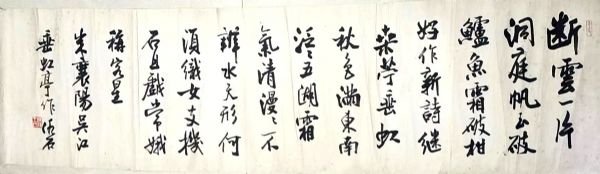 断雲一片
洞庭帆玉破
鱸魚霜破柑
好作新詩继
桒苧垂虹
秋色满東南
泛々五湖霜
氣清漫々不
辨水天形何
須織女支機
石且戲常娥
稱客星
米襄陽吴江
垂虹亭作